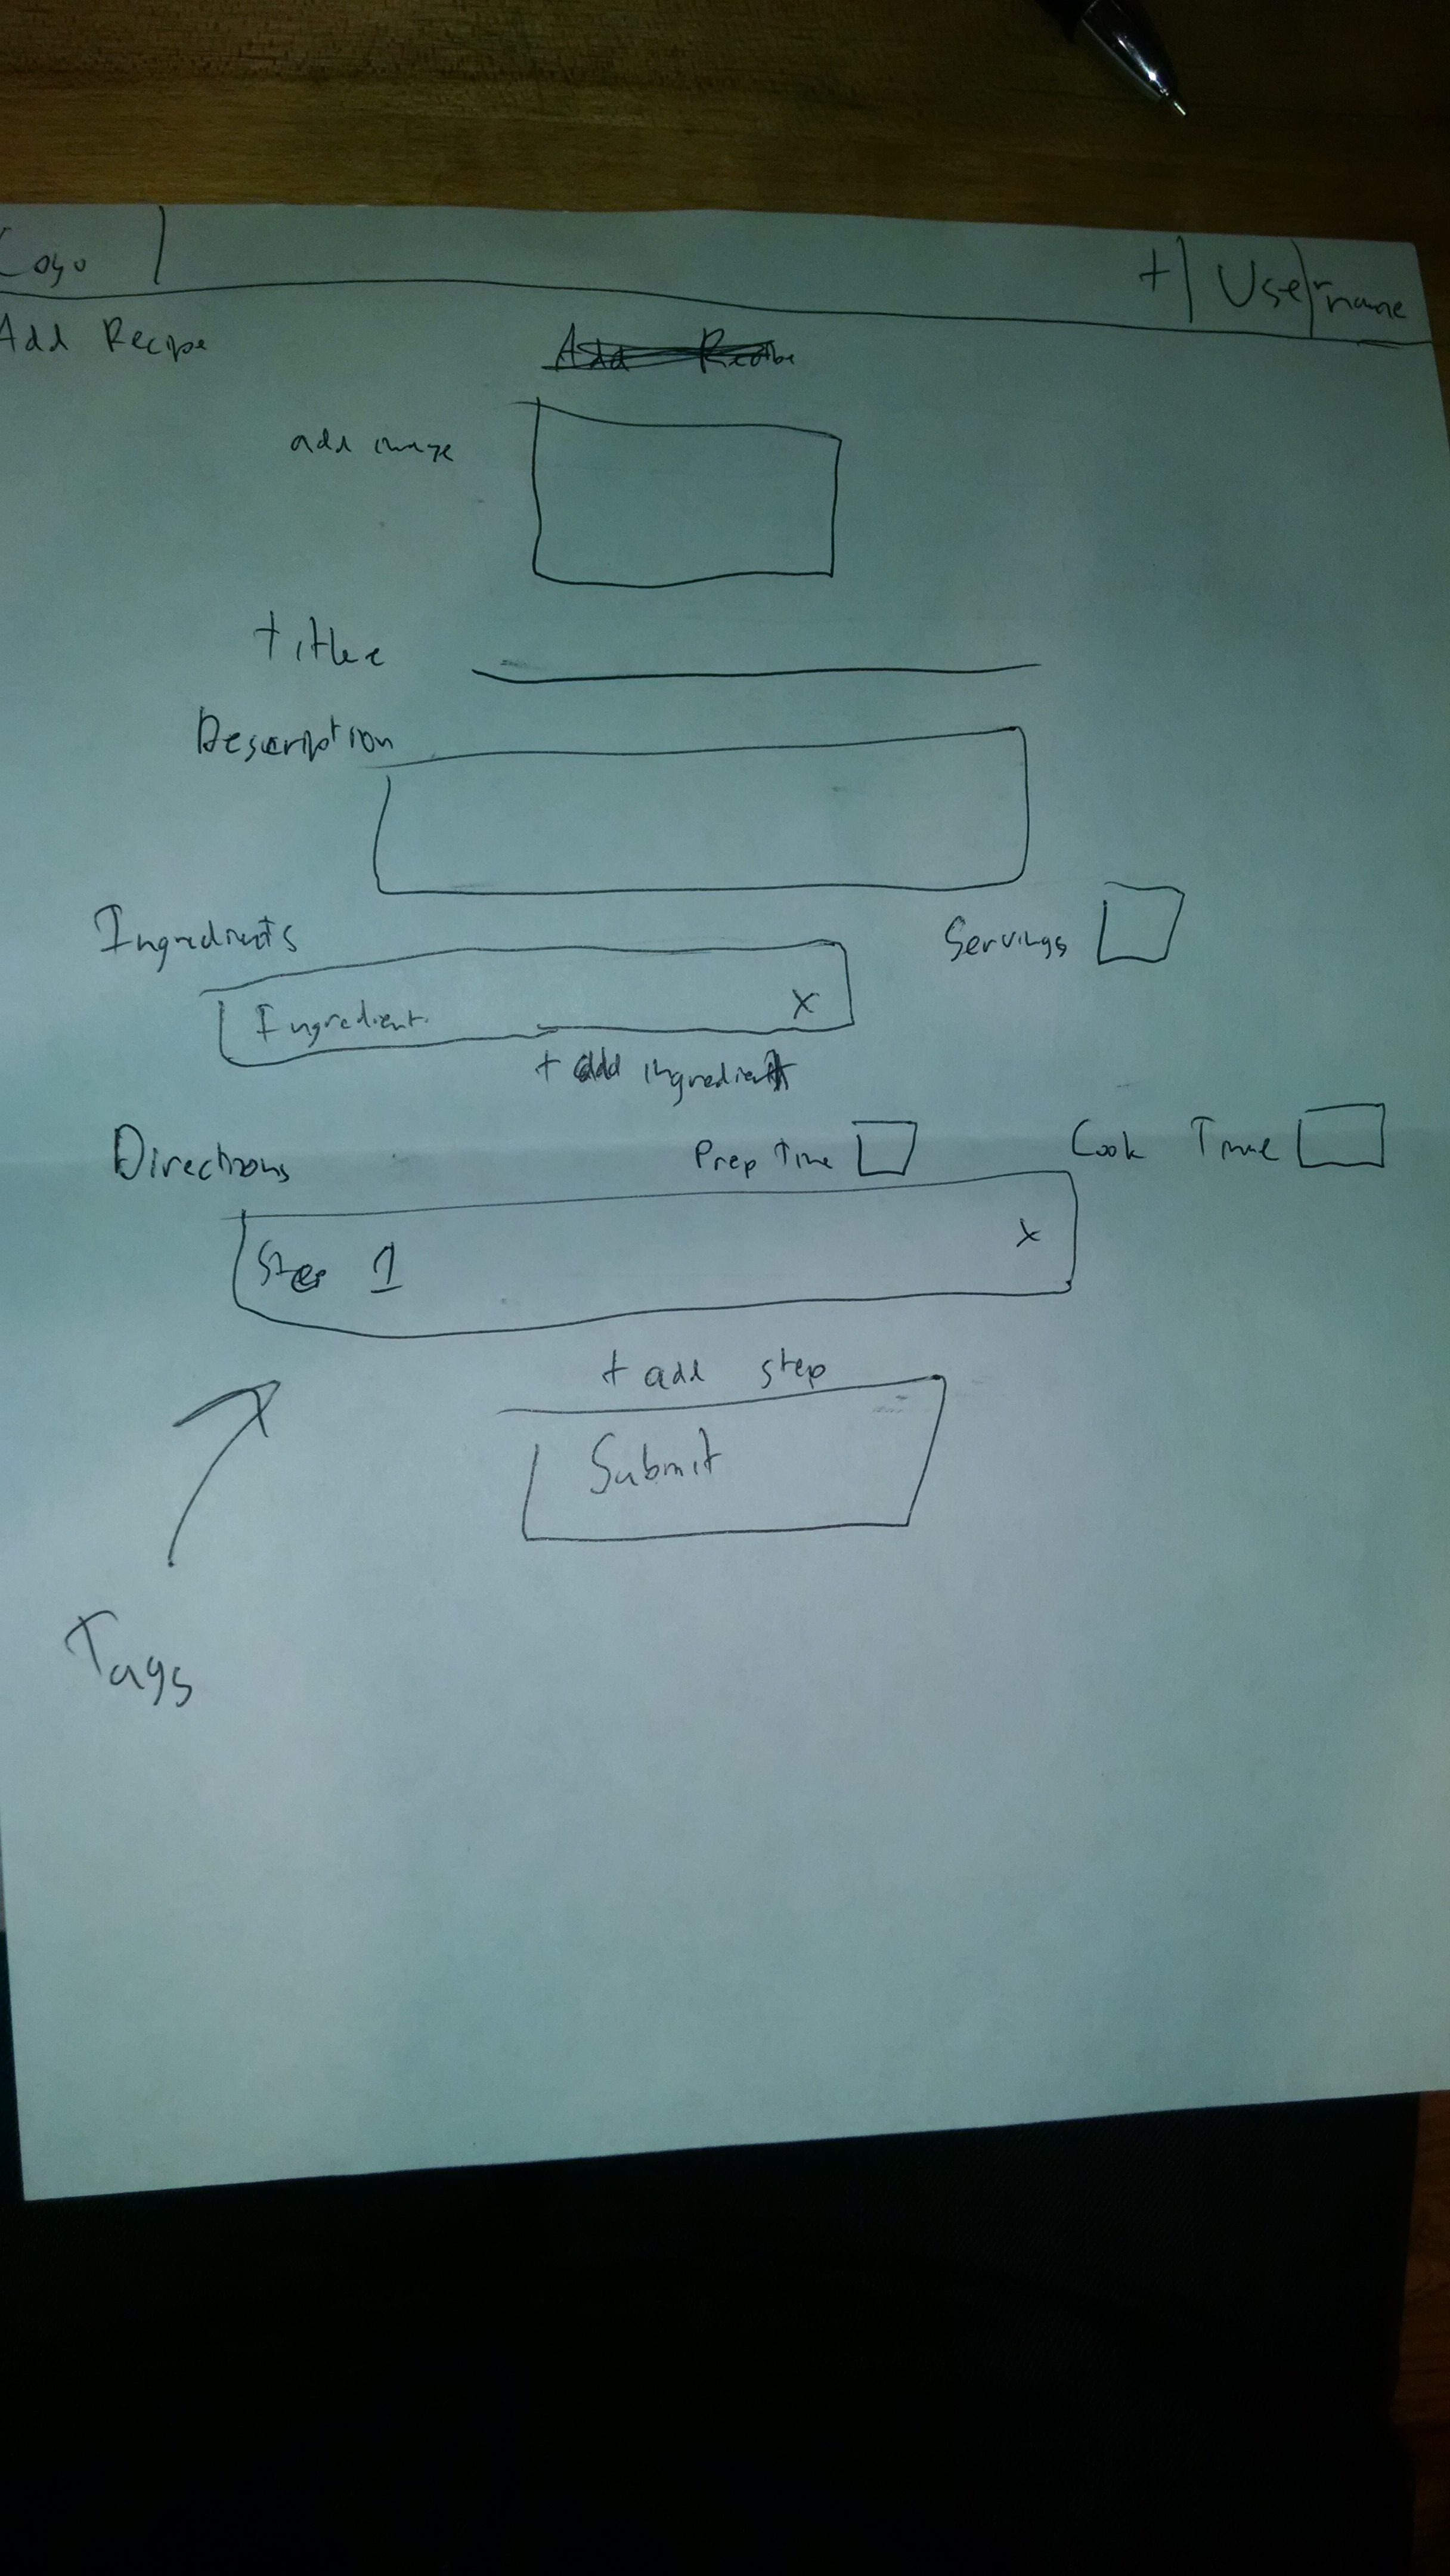 Logo + Username
Add Recipe Add Recibe
add image
title
Description
Ingredients Servings
Ingredient X
+ add ingredient
Directions Prep time Cook Time
Step 1 X
+ add step
Submit
Tags